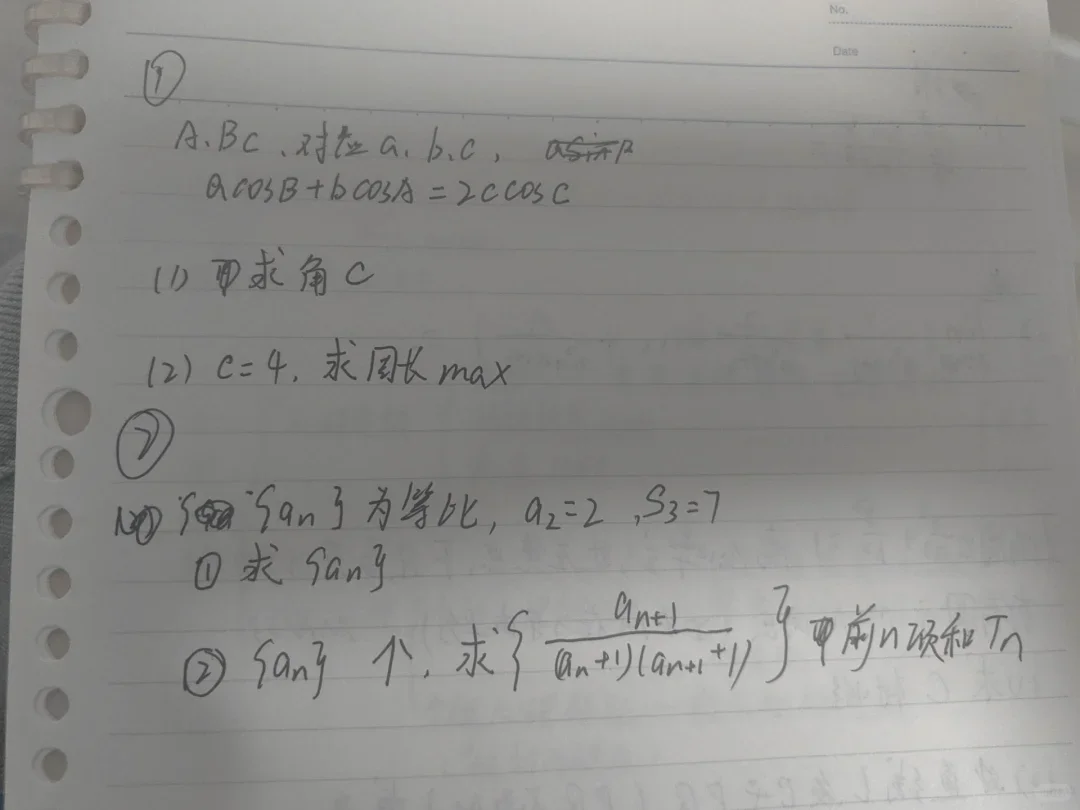 No.
Date
①
A.BC、对应a.b.c,
acosB+bcosA=2ccosC
(1) 求角C
(2) c=4. 求周长max
②
{an}为等比, a2=2 ,S3=7
① 求{an}
② {an}个. 求{an+1/(an+1)(an+1+1)}前n项和Tn